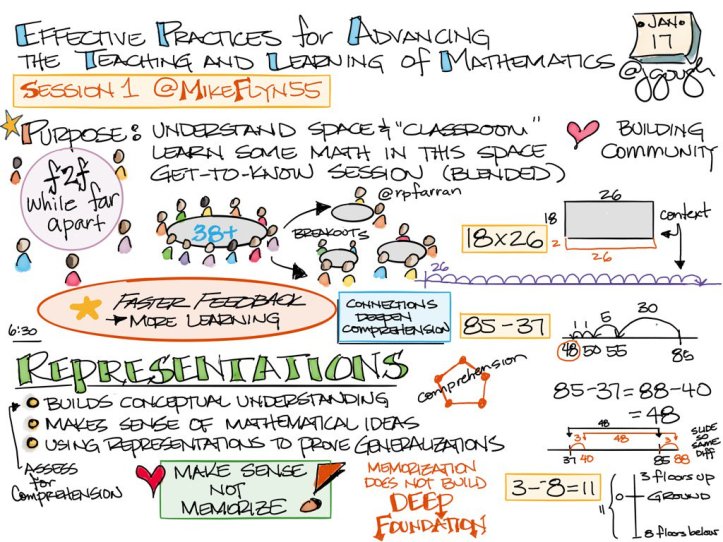 EFFECTIVE PRACTICES for ADVANCING
THE TEACHING AND LEARNING of MATHEMATICS
JAN
17
@jgough
SESSION 1 @MIKEFLYN55
PURPOSE: UNDERSTAND SPACE & "CLASSROOM"
LEARN SOME MATH IN THIS SPACE
GET-TO-KNOW SESSION (BLENDED)
BUILDING
COMMUNITY
f2f
while far
apart
38+
BREAKOUTS
@rpfarran
18x26
26
18
2
26
context
26
FASTER FEEDBACK
→ MORE LEARNING
CONNECTIONS
DEEPEN
COMPREHENSION
85-37
1 1 5 30
48 50 55 85
6:30
REPRESENTATIONS
BUILDS CONCEPTUAL UNDERSTANDING
MAKES SENSE OF MATHEMATICAL IDEAS
USING REPRESENTATIONS TO PROVE GENERALIZATIONS
ASSESS
for
COMPREHENSION
comprehension
85-37=88-40
=48
48
3 48 3
37 40 85 88
SLIDE
SO
SAME
DIFF
MAKE SENSE
NOT
MEMORIZE
MEMORIZATION
DOES NOT BUILD
DEEP
FOUNDATION
3-⁻8=11
11
3 floors up
0 GROUND
8 floors below